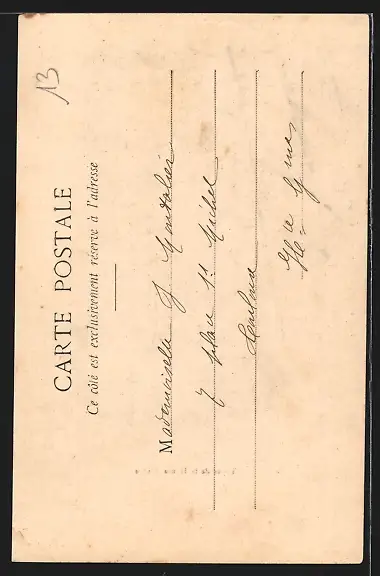 13
CARTE POSTALE
Ce côté est exclusivement réservé à l'adresse
Mademoiselle J
7 place St Michel
Toulouse
Hte Gne